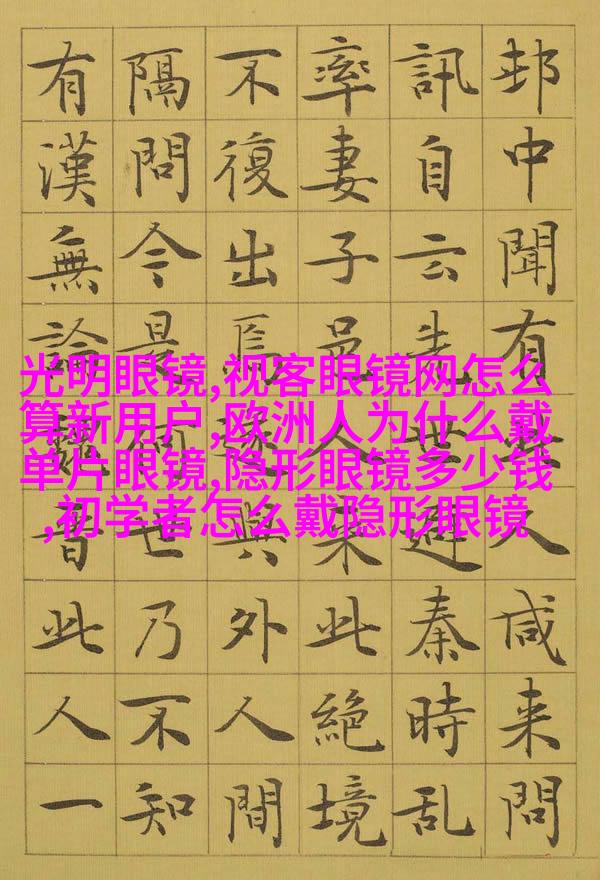 光明眼镜,视客眼镜网怎么
算新用户,欧洲人为什么戴
单片眼镜,隐形眼镜多少钱
,初学者怎么戴隐形眼镜
邨中聞有人咸来問
訊自云先世避秦時乱
率妻子邑人来此絶境
不復出焉與外人間
隔問今是何世乃不知
有漢無論此人一